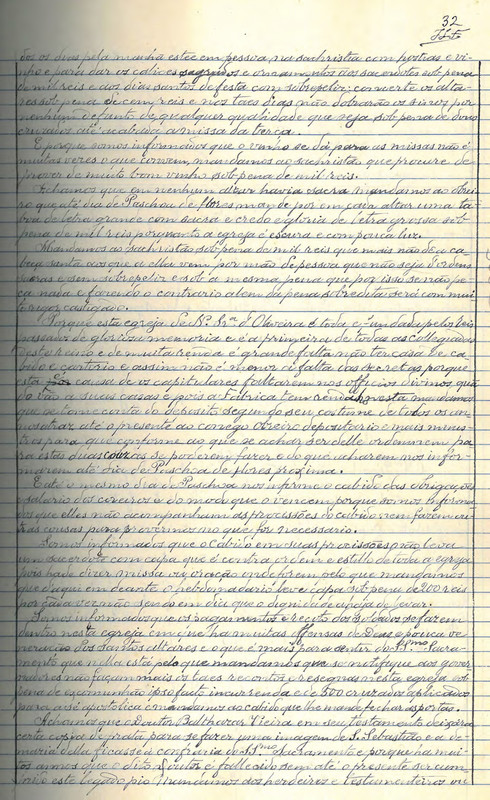 32
dos os dias pela manhã este em pessoa, na sachristia com hostias e vi-
nho e para dar os calices sagrados e ornamentos aos sacerdotes sob pena
de mil reis e aos dias santos de festa com sobrepeliz; concerte os alta-
res sob pena de cem reis e nos taes dias não dobrarão os sinos por
nenhum defunto de qualquer qualidade que seja sob pena de dous
cruzados até acabada a missa da terça.
E porque somos informados que o vinho se dá para as missas não é
muitas vezes o que convem, mandamos ao sachristão que procure de
prover de muito bom vinho sob pena de mil reis.
Achamos que em nenhum altar havia sacra mandamos ao obrei-
ro que até dia de Paschoa de flores mande por em cada altar uma ta-
boa de letra grande com sacra e credo e gloria de letra grossa sob
pena de mil reis porquanto a egreja é escura e com pouca luz.
Mandamos ao sachristão sob pena de mil reis que mais não dê a ca-
sacras e sem sobrepeliz e sob a mesma pena que por isso se não pe-
ça nada e fazendo o contrario alem da pena sobredita será com mui-
to rigor castigado.
Porque esta egreja de N.ª Sr.ª d'Oliveira é toda fundada pelos reis
passados de gloriosa memoria e é a primeira de todas as collegiadas
deste reino e de muita renda é grande falta não ter casa de ca-
bido e cartorio e assim não é menor a falta das secretas porque
esta causa de os capitulares faltarem nos officios divinos, quan-
do vão a suas casas e pois a Fabrica tem renda mandamos
que se tome conta do deposito segundo seu costume de todos os an-
nos atraz até o presente ao conego obreiro depositario e mais minis-
tros para que conforme ao que se achar ser delle ordenarem pa-
ra estas duas cousas se poderem fazer e do que acharem nos infor-
marem até dia de Paschoa de flores proxima.
E até o mesmo dia de Paschoa nos informe o cabido das obrigações
e salario dos coreiros e do modo que o vencem porque somos informa-
dos que elles não acompanham as procissões do cabido nem fazem ou-
tras cousas para provermos no que for necessario.
Somos informados que o Cabido em suas procissões não leva
um sacerdote com capa que é contra ordem e estillo de toda a egreja
pois hade dizer missa ou oração onde forem pelo que mandamos
que d'aqui em deante o hebdomadario leve capa sob pena de 200 reis
por cada vez não sendo em dia que o dignidade a haja de levar.
Somos informados que os pagamentos e recontos dos soldados se fazem
dentro nesta egreja em que ha muitas offensas de Deus e pouca ve-
neração dos Santos altares e o que é mais para sentir do SS.mo Sacra-
mento que nella está pelo que mandamos que se notifique aos gover-
nadores não façam mais os taes recontos e resegnas nesta egreja sob
pena de excomunhão ipso facto incurrenda e de 500 cruzados aplicados
para a sé apostolica e mandamos ao cabido que lhe mande fechar as portas.
Achamos que o Doutor Balthazar Vieira em seu testamento deixou
certa copia de prata para se fazer uma imagem de S. Sebastião e a de-
masia della ficasse á confraria do SS.mo Sacramento e porque ha mui-
tos annos que o dito Doutor é fallecido sem até o presente ser cum-
prido este legado pio, mandamos aos herdeiros e testamenteiros ou